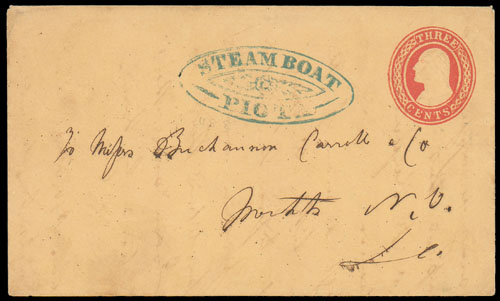 STEAMBOAT
THREE
CENTS
To Messrs Buchannon Carroll & Co
N. O.
La.